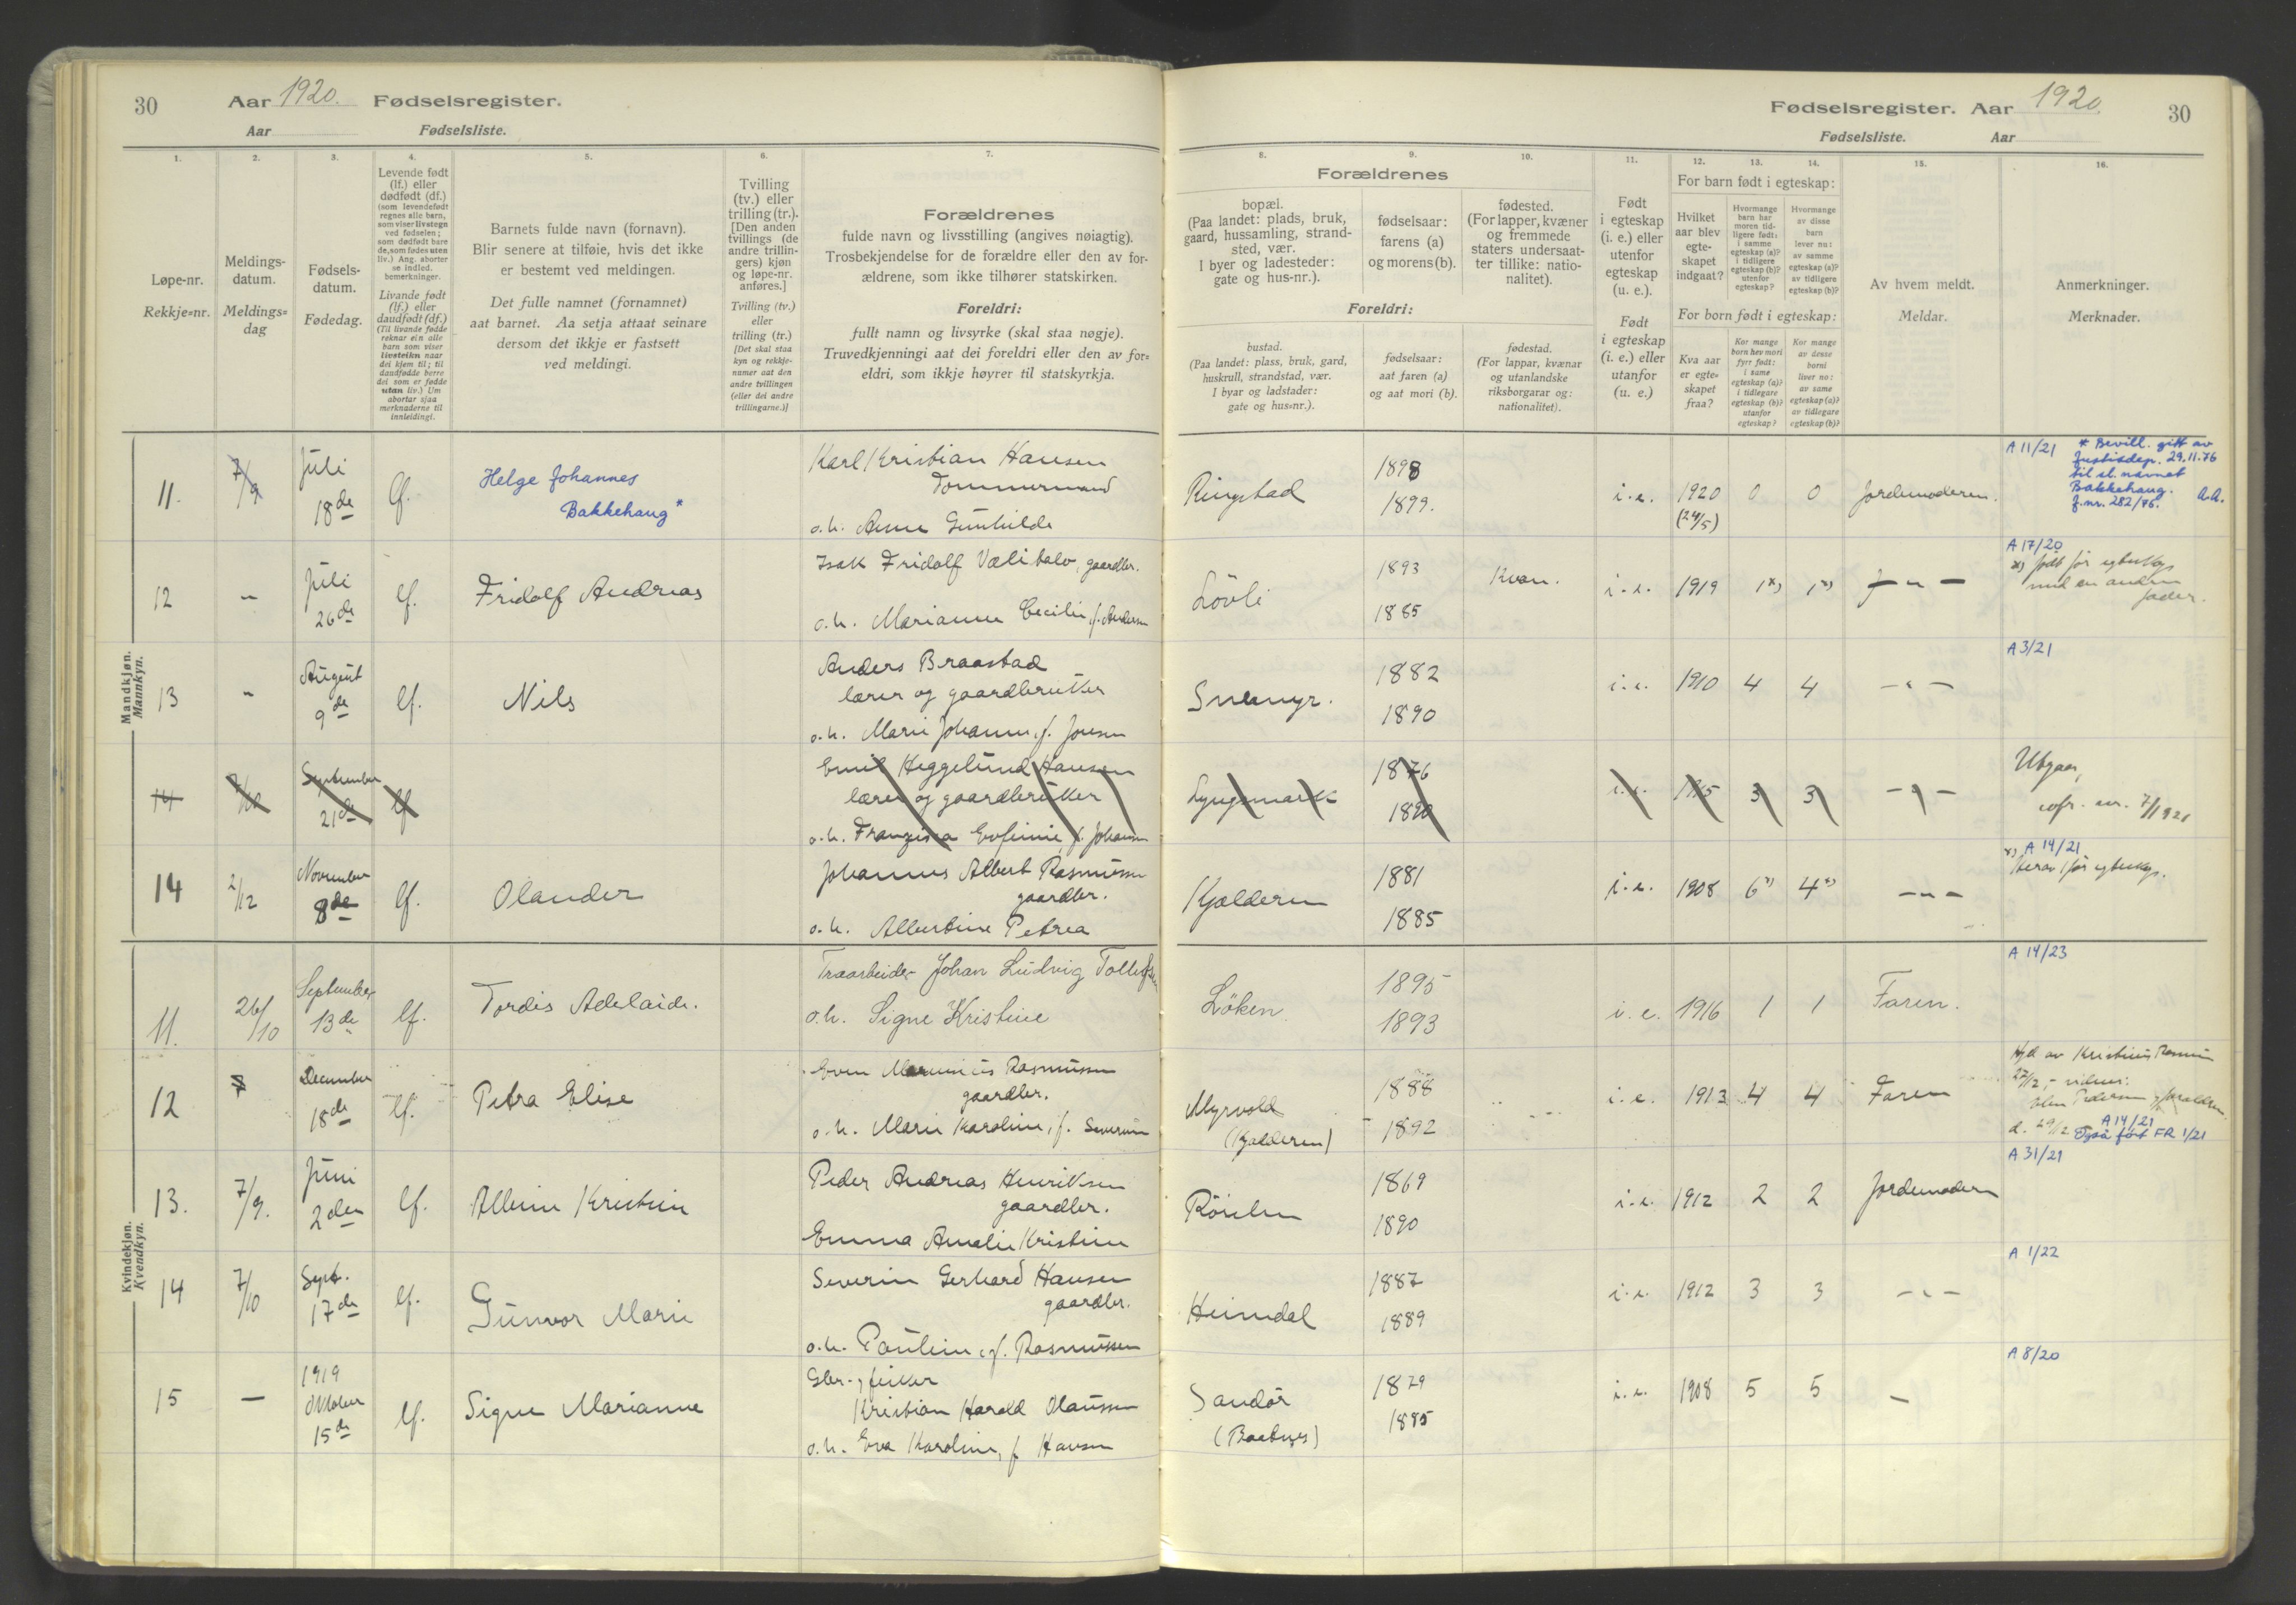 30 Aar 1920. Fødselsregister.
Aar Fødselsliste.
1.
Løpe-nr.
Rekkje=nr.
2.
Meldings-
datum.
Meldings=
dag
3.
Fødsels-
datum.
Fødedag.
4.
Levende født
(lf.) eller
dødfødt (df.)
(som levendefødt
regnes alle barn,
som viser livstegn
ved fødselen;
som dødfødt bare
de, som fødes uten
liv.) Ang. aborter
se indled.
bemerkninger.
Livande født
(lf.) eller
daudfødt (df.)
(Til livande fødde
reknar ein alle
barn som viser
livsteikn naar
dei kjem til; til
daudfødde berre
dei som er fødde
utan liv.) Um
abortar sjaa
merknaderne til
innleidingi.
5.
Barnets fulde navn (fornavn).
Blir senere at tilføie, hvis det ikke
er bestemt ved meldingen.
Det fulle namnet (fornamnet)
aat barnet. Aa setja attaat seinare
dersom det ikkje er fastsett
ved meldingi.
6.
Tvilling
(tv.) eller
trilling (tr.).
[Den anden
tvillings (de
andre trillin-
gers) kjøn
og løpe-nr.
anføres.]
Tvilling (tv.)
eller
trilling (tr.)
[Det skal staa
kyn og rekkje-
numer aat den
andre tvillingen
(eller dei andre
trillingarne.)]
7.
Forældrenes
fulde navn og livsstilling (angives nøiagtig).
Trosbekjendelse for de forældre eller den av for-
ældrene, som ikke tilhører statskirken.
Foreldri:
fullt namn og livsyrke (skal staa nøgje).
Truvedkjenningi aat dei foreldri eller den av for=
eldri, som ikkje høyrer til statskyrkja.
Mandkjøn.
Mannkyn.
11. 7/9 Juli
18de lf. Helge Johannes
Bakkehaug*
Karl Kristian Hansen
Tømmermand
o.h. Anna Gunhilde
12 – Juli
26de lf. Fridolf Andreas
Isak Fridolf Vælitalo, gaardbr.
o.h. Marianne Cecilie, f. Andersen
13 – August
9de lf. Nils
Anders Braastad
lærer og gaardbruker
o.h. Marie Johanne, f. Jensen
14 7/10 September
21de lf
Emil Heggelund Hansen
lærer og gaardbruker
o.h. Franziska Eufemie, f. Johansen
14 2/12 November
8de lf. Olander
Johannes Albert Rasmussen
gaardbr.
o.h. Albertine Petrea
Kvindekjøn.
Kvendkyn.
11. 26/10 September
13de lf. Tordis Adelaide.
Træarbeider Johan Ludvig Tollefsen
o.h. Signe Kristine
12 December
18de lf. Petra Elise
Even Rasmussen
gaardbr.
o.h. Marie Karoline, f. Severinsen
13. 7/9. Juni
2den lf. Albine Kristine
Peder Andreas Henriksen
gaardbr.
Emma Amalie Kristine
14 7/10 Sept.
17de lf. Gunvor Marie
Severin Gerhard Hansen
gaardbr.
o.h. Pauline, f. Rasmussen
15 – 1919
Oktober
15de lf. Signe Marianne
Gbr. fisker
Kristian Harald Olaussen
o.h. Eva Karoline, f. Hansen
Fødselsregister. Aar 1920 30
Fødselsliste. Aar
8.
Forældrenes
bopæl.
(Paa landet: plads, bruk,
gaard, hussamling, strand-
sted, vær.
I byer og ladesteder:
gate og hus-nr.).
9.
fødselsaar:
farens (a)
og morens (b).
10.
fødested.
(For lapper, kvæner
og fremmede
staters undersaat-
ter tillike: natio-
nalitet).
Foreldri:
bustad.
(Paa landet: plass, bruk, gard,
huskrull, strandstad, vær.
I byar og ladstader:
gate og hus=nr.).
fødselsaar:
aat faren (a)
og aat mori (b).
fødestad.
(For lappar, kvænar
og utanlandske
riksborgarar og:
nationalitet).
11.
Født
i egteskap
(i. e.) eller
utenfor
egteskap
(u. e.).
Født
i egteskap
(i. e.) eller
utanfor
(u. e.)
12. 13. 14.
For barn født i egteskap:
Hvilket
aar blev
egte-
skapet
indgaat?
Hvormange
barn har
moren tid-
ligere født:
i samme
egteskap (a)?
i tidligere
egteskap (b)?
utenfor
egteskap?
Hvormange
av disse
barn
lever nu:
av samme
egteskap (a)?
av tidligere
egteskap (b)?
For born født i egteskap:
Kva aar
er egte=
skapet
fraa?
Kor mange
born hev mori
fyrr født:
i same
egteskap (a)?
i tidlegare
egteskap (b)?
utanfor
egteskap?
Kor mange
av desse
borni
liver no:
av same
egteskap (a)?
av tidlegare
egteskap (b)?
15.
Av hvem meldt.
Meldar.
16.
Anmerkninger.
Merknader.
Ringstad 1898
1899. i.e. 1920
(24/5) 0 0 Jordemoderen.
A 11/21 * Bevill. gitt av
Justisdep. 29.11.76
til sl. navnet
Bakkehaug.
j.nr. 282/76. A.A.
Lövli 1893
1885 Kvæn. i.e. 1919 1x) 1x) J – " –
A 17/20
x) født før egteskap
med en anden
fader.
Snemyr. 1882
1890 i.e. 1910 4 4 – " –
A 3/21
Lyngsmark 1876
1890 i.e. 1915 3 3 – " –
Utgaar,
cfr. nr. 7/1921
Kjelderen 1881
1885 i.e. 1908 6x) 4x) – " –
A 14/21
x) Herav 1 før egteskap.
Löken 1895
1893 i.e. 1916 1 1 Faren.
A 14/23
Myrvold
(Kjelderen) 1888
1892 i.e. 1913 4 4 Faren
Hjd av Kristine
27/12,
A 14/21
Også ført FR 1/21
1869
1890 i.e. 1912 2 2 Jordemoderen
A 31/21
Heimdal 1887
1889 i.e. 1912 3 3 – " –
A 1/22
Sandör
(Baatnes) 1879
1885 i.e. 1908 5 5 –
A 8/20